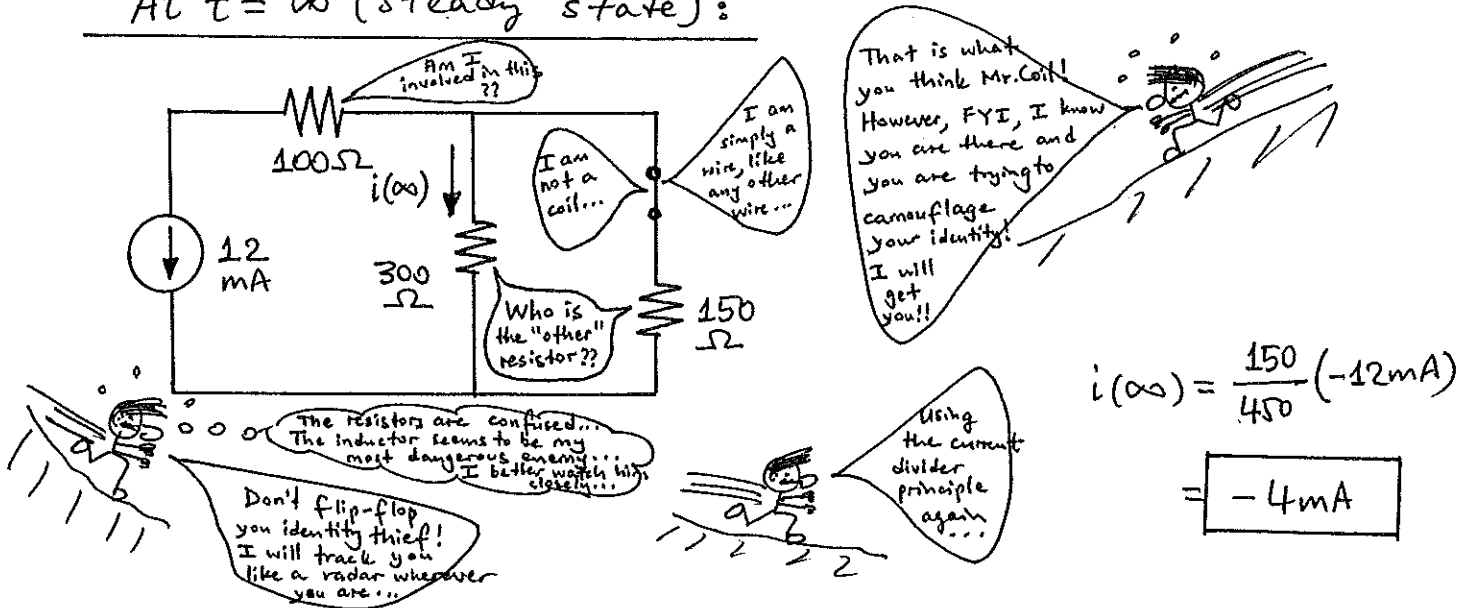 At t = ∞ (steady state):
Am I
involved in this
??
100Ω
i(∞)
12
mA
300
Ω
I am
not a
coil...
I am
simply a
wire, like
any other
wire...
Who is
the "other"
resistor??
150
Ω
That is what
you think Mr. Coil!
However, FYI, I know
you are there and
you are trying to
camouflage
your identity!
I will
get
you!!
The resistors are confused...
The inductor seems to be my
most dangerous enemy...
I better watch him
closely...
Don't flip-flop
you identity thief!
I will track you
like a radar wherever
you are...
Using
the current
divider
principle
again
...
i(∞) = 150/450 (-12mA)
= -4mA